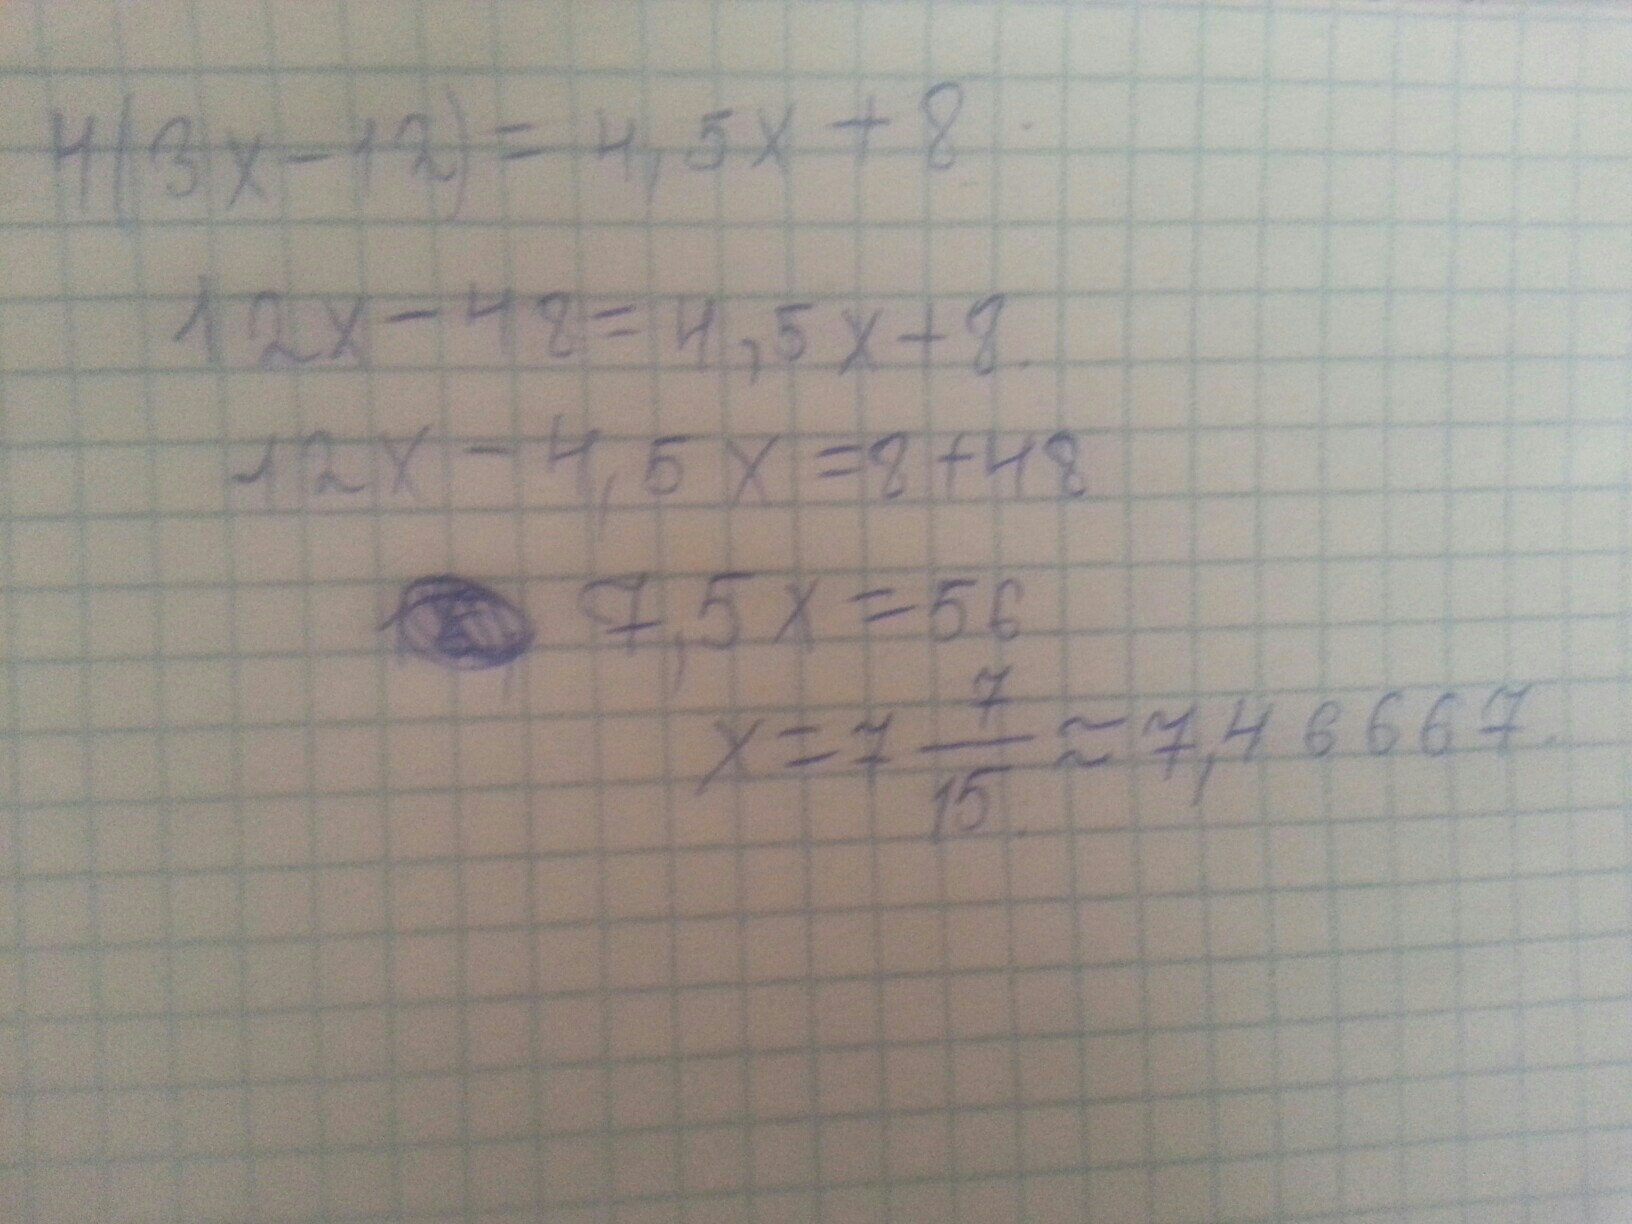 4(3x-12)=4,5x+8.
12x-48=4,5x+8.
12x-4,5x=8+48
7,5x=56
x=7 7/15≈7,46667.